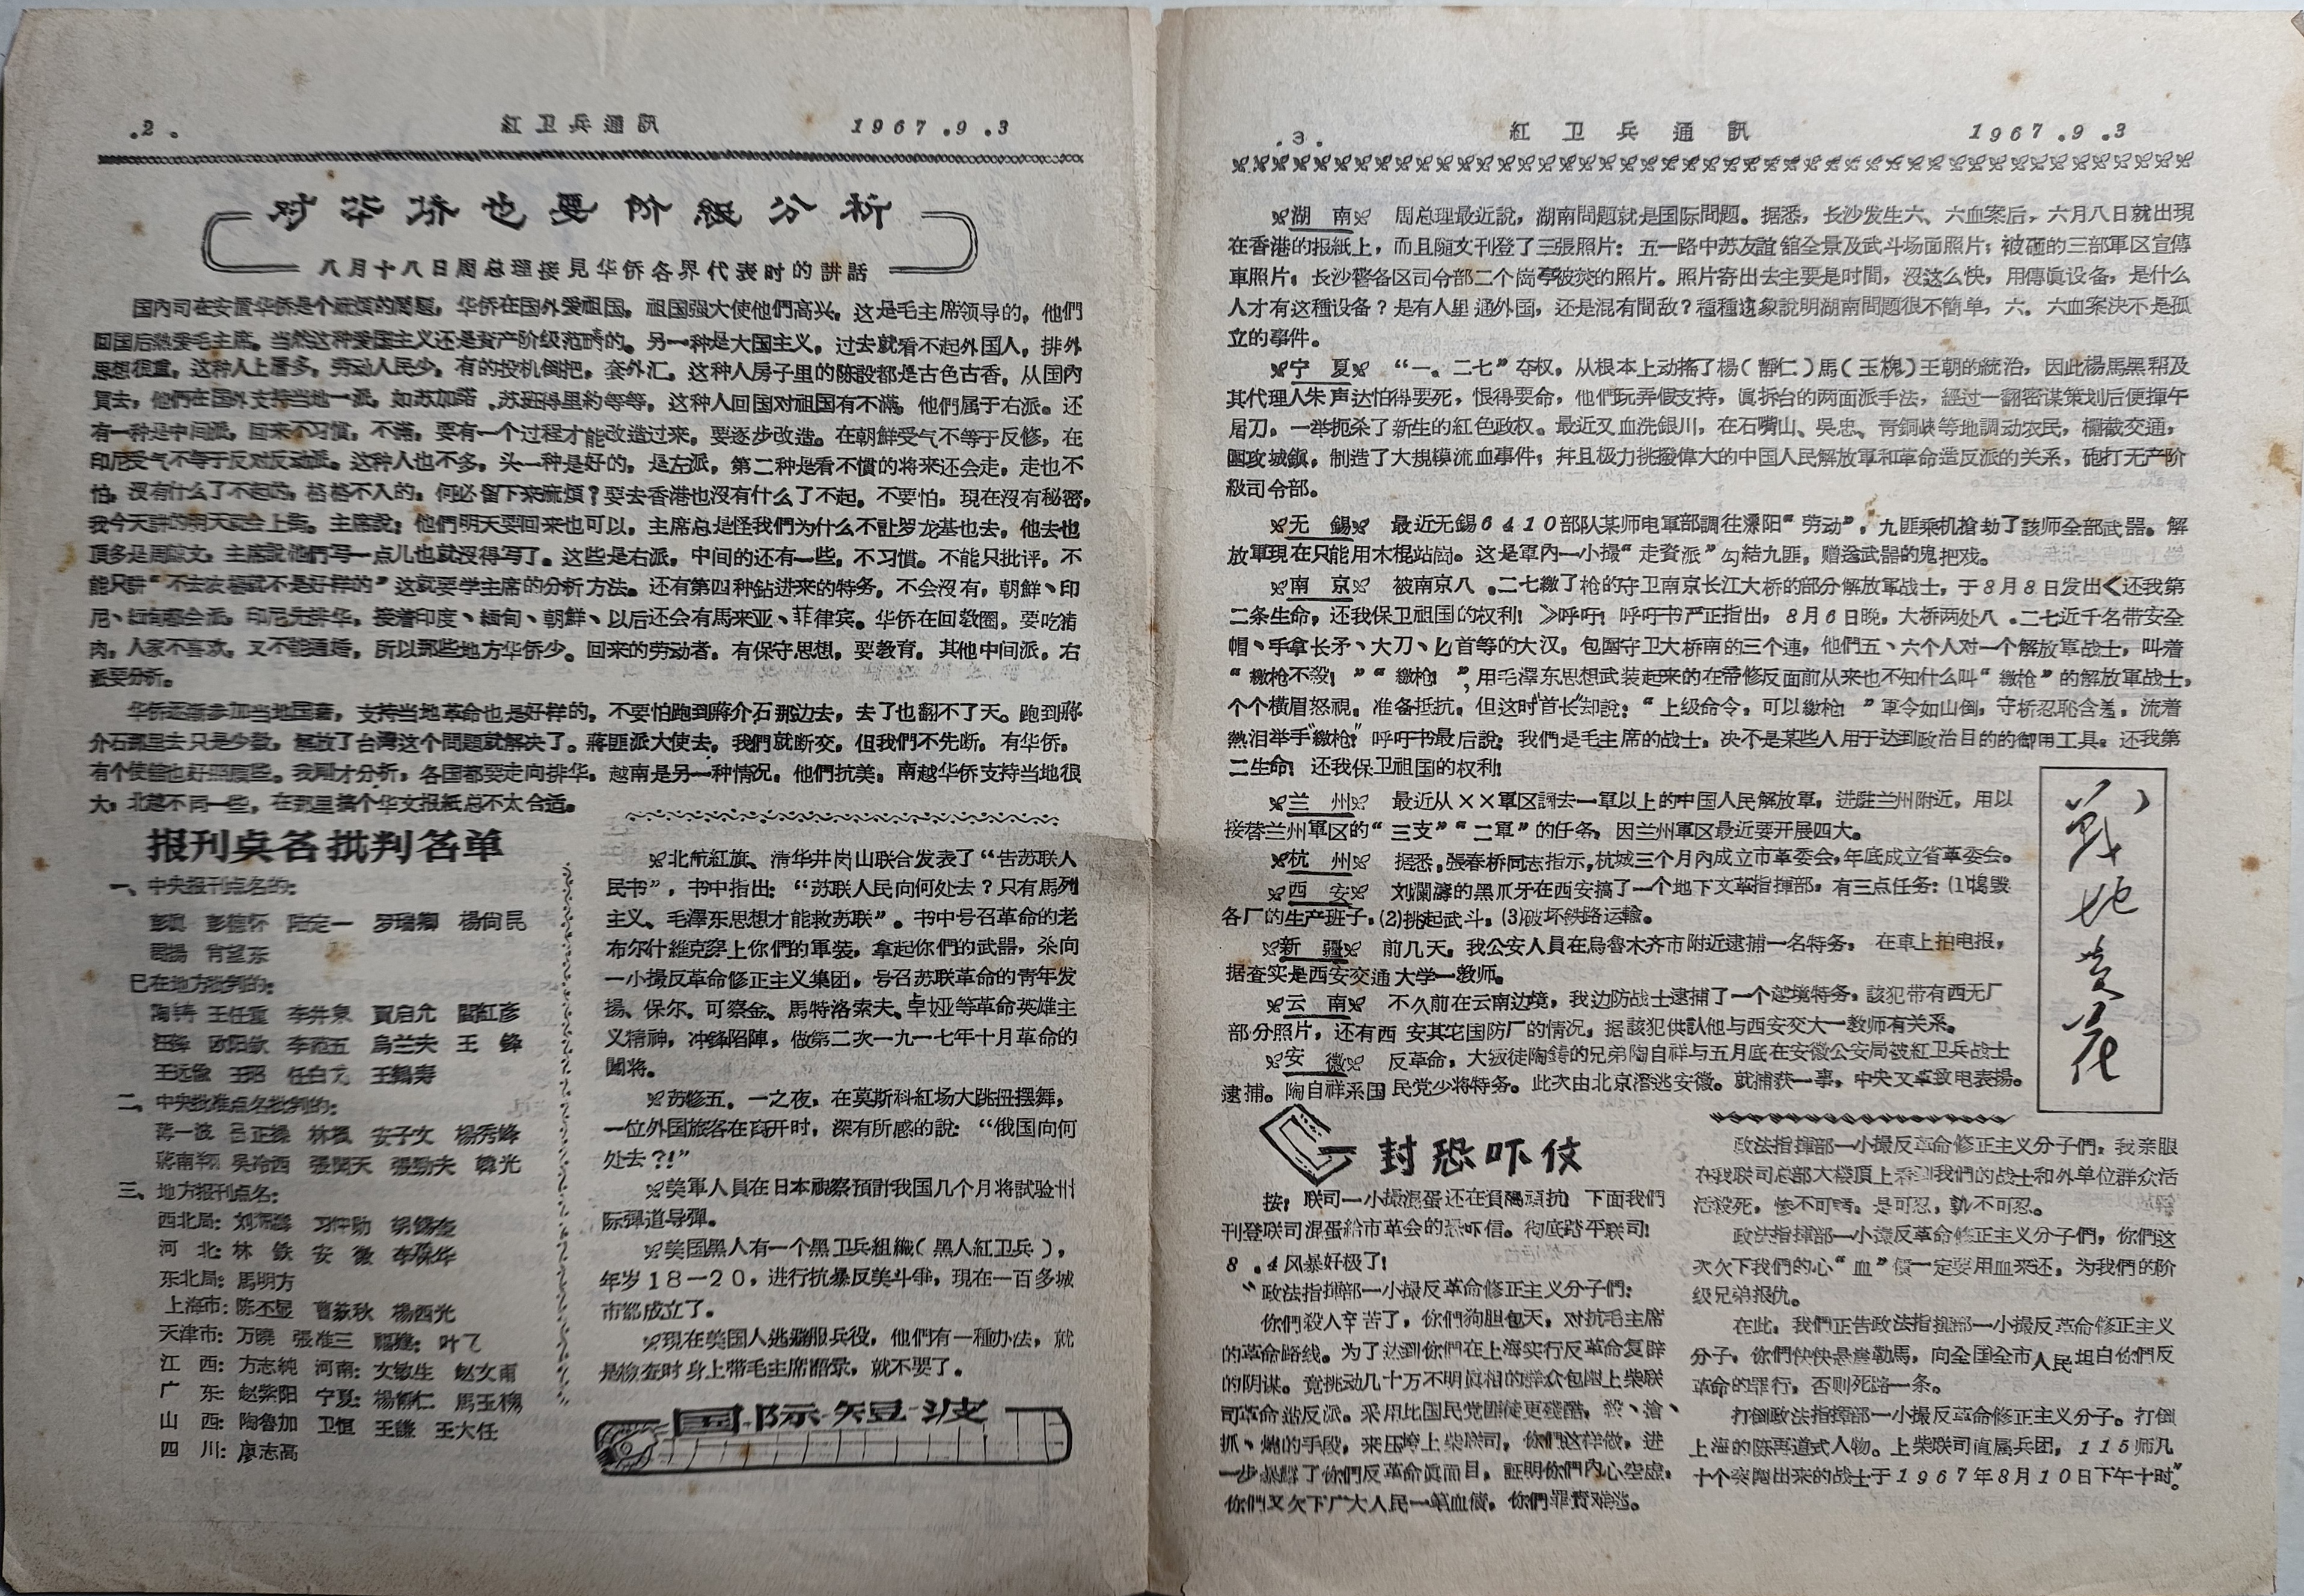 .2.
紅卫兵通訊
1967.9.3
对华侨也要阶級分析
八月十八日周总理接見华侨各界代表时的讲話
国內司在安置华侨是个麻煩的問題，华侨在国外爱祖国，祖国强大使他們高兴，这是毛主席领导的，他們
回国后热爱毛主席。当然这种爱国主义还是資产阶级范畴的。另一种是大国主义，过去就看不起外国人，排外
思想很重，这种人上层多，劳动人民少，有的投机倒把，套外汇。这种人房子里的陈設都是古色古香，从国內
買去，他們在国外支持当地一派，如苏加諾、苏班得里約等等，这种人回国对祖国有不滿，他們属于右派。还
有一种是中间派，回来不习惯，不滿，要有一个过程才能改造过来，要逐步改造。在朝鮮受气不等于反修，在
印尼受气不等于反对反动派。这种人也不多，头一种是好的，是左派，第二种是看不惯的将来还会走，走也不
怕，沒有什么了不起的，格格不入的，何必留下来麻煩？要去香港也沒有什么了不起，不要怕，現在沒有秘密，
我今天讲的明天就会上街。主席說：他們明天要回来也可以，主席总是怪我們为什么不让罗龙基也去，他去也
頂多是周鯨文，主席說他們写一点儿也就沒得写了。这些是右派，中间的还有一些，不习惯。不能只批评，不
能只讲“不去农場就不是好样的”这就要学主席的分析方法。还有第四种钻进来的特务，不会沒有，朝鮮、印
尼、緬甸都会派，印尼先排华，接着印度、緬甸、朝鮮、以后还会有馬来亚、菲律宾。华侨在回敎圈，要吃猪
肉，人家不喜欢，又不能通婚，所以那些地方华侨少。回来的劳动者，有保守思想，要教育，其他中间派，右
派要分析。
华侨逐漸参加当地国籍，支持当地革命也是好样的，不要怕跑到蔣介石那边去，去了也翻不了天。跑到蔣
介石那里去只是少数，解放了台灣这个問題就解决了。蔣匪派大使去，我們就断交，但我們不先断，有华侨，
有个使館也好照顧些。我刚才分析，各国都要走向排华，越南是另一种情况，他們抗美，南越华侨支持当地很
大，北越不同一些，在那里搞个华文报紙总不太合适。
报刊点名批判名单
一、中央报刊点名的：
彭眞 彭德怀 陆定一 罗瑞卿 楊尙昆
周揚 肖望东
已在地方批判的：
陶铸 王任重 李井泉 賈启允 閻紅彦
汪鋒 欧阳欽 李范五 烏兰夫 王鋒
王远
二、中央批准点名批判的：
薄一波 吕正操 林楓 安子文 楊秀峰
蔣南翔 吳冷西 張聞天 張勁夫 韓光
三、地方报刊点名：
西北局：刘瀾濤 习仲勛 胡錫奎
河北：林鉄
东北局：馬明方
上海市：陈丕显 曹荻秋 楊西光
天津市：万曉 張淮三 福建：叶飞
江西：方志純 河南：文敏生 赵文甫
广东：赵紫阳 宁夏：楊靜仁 馬玉槐
山西：陶魯加 卫恒 王謙 王大任
四川：廖志高
北航紅旗、清华井岗山联合发表了“告苏联人
民书”，书中指出：“苏联人民向何处去？只有馬列
主义、毛澤东思想才能救苏联”。书中号召革命的老
布尔什維克穿上你們的軍装，拿起你們的武器，杀向
一小撮反革命修正主义集团，号召苏联革命的青年发
揚、保尔、可察金、馬特洛索夫、卓娅等革命英雄主
义精神，冲鋒陷陣，做第二次一九一七年十月革命的
闖将。
苏修五．一之夜，在莫斯科紅场大跳扭摆舞，
一位外国旅客在离开时，深有所感的說：“俄国向何
处去?!”
美軍人員在日本視察預計我国几个月将試验州
际彈道导彈。
美国黑人有一个黑卫兵組織（黑人紅卫兵），
年岁18—20，进行抗暴反美斗爭，現在一百多城
市都成立了。
現在美国人逃避服兵役，他們有一種办法，就
是檢查时身上带毛主席語录，就不要了。
国际短波
.3.
紅卫兵通訊
1967.9.3
湖南 周总理最近說，湖南問題就是国际問題。据悉，长沙发生六、六血案后，六月八日就出現
在香港的报紙上，而且随文刊登了三張照片：五一路中苏友誼舘全景及武斗场面照片；被砸的三部軍区宣傳
車照片；长沙警备区司令部二个崗亭被焚的照片。照片寄出去主要是时間，沒这么快，用傳眞设备，是什么
人才有这種设备？是有人里通外国，还是混有間敌？種種迹象說明湖南問題很不簡单，六．六血案决不是孤
立的事件。
宁夏 “一．二七”夺权，从根本上动搖了楊（靜仁）馬（玉槐）王朝的統治，因此楊馬黑帮及
其代理人朱声达怕得要死，恨得要命，他們玩弄假支持，眞拆台的两面派手法，經过一翻密谋策划后便揮午
屠刀，一举扼杀了新生的紅色政权。最近又血洗銀川，在石嘴山、吳忠、青銅峡等地調动农民，攔截交通，
圍攻城鎮，制造了大規模流血事件；幷且极力挑撥偉大的中国人民解放軍和革命造反派的关系，砲打无产阶
級司令部。
无錫 最近无錫6410部队某师电軍部調往溧阳“劳动”，九匪乘机搶劫了該师全部武器。解
放軍現在只能用木棍站崗。这是軍內一小撮“走資派”勾結九匪，赠送武器的鬼把戏。
南京 被南京八．二七繳了枪的守卫南京长江大桥的部分解放軍战士，于8月8日发出＜还我第
二条生命，还我保卫祖国的权利！≫呼吁！呼吁书严正指出，8月6日晚，大桥两处八．二七近千名带安全
帽、手拿长矛、大刀、匕首等的大汉，包圍守卫大桥南的三个連，他們五、六个人对一个解放軍战士，叫着
“繳枪不殺！”“繳枪！”，用毛澤东思想武装起来的在帝修反面前从来也不知什么叫“繳枪”的解放軍战士，
个个横眉怒視，准备抵抗，但这时“首长”却說：“上级命令，可以繳枪！”軍令如山倒，守桥忍恥含羞，流着
熱泪举手“繳枪！”呼吁书最后說：我們是毛主席的战士，决不是某些人用于达到政治目的的御用工具：还我第
二生命！还我保卫祖国的权利！
兰州 最近从××軍区調去一軍以上的中国人民解放軍，进駐兰州附近，用以
接替兰州軍区的“三支”“二軍”的任务，因兰州軍区最近要开展四大。
杭州 据悉，張春桥同志指示，杭城三个月內成立市革委会，年底成立省革委会。
西安 刘瀾濤的黑爪牙在西安搞了一个地下文革指揮部，有三点任务：(1)搗毀
各厂的生产班子，(2)挑起武斗，(3)破坏鉄路运輸。
新疆 前几天，我公安人員在烏魯木齐市附近逮捕一名特务，在車上拍电报，
据查实是西安交通大学一教师。
云南 不久前在云南边境，我边防战士逮捕了一个越境特务，該犯带有西无厂
部分照片，还有西安其它国防厂的情况，据該犯供訊他与西安交大一教师有关系。
安徽 反革命，大叛徒陶鑄的兄弟陶自祥与五月底在安徽公安局被紅卫兵战士
逮捕。陶自祥系国民党少将特务。此次由北京潛逃安徽。就捕获一事，中央文革致电表揚。
戰地黄花
一封恐吓信
按：联司一小撮混蛋还在負隅頑抗！下面我們
刊登联司混蛋給市革会的恐吓信。彻底踏平联司！
8.4风暴好极了！
“政法指揮部一小撮反革命修正主义分子們：
你們殺人辛苦了，你們狗胆包天，对抗毛主席
的革命路线。为了达到你們在上海实行反革命复辟
的阴谋。竟挑动几十万不明眞相的群众包圍上柴联
司革命造反派。采用比国民党匪徒更殘酷，殺、搶、
抓、燒的手段，来压垮上柴联司，你們这样做，进
一步暴露了你們反革命眞面目，証明你們內心空虛，
你們又欠下广大人民一筆血債，你們罪責难逃。
政法指揮部一小撮反革命修正主义分子們，我亲眼
在我联司总部大楼頂上看到我們的战士和外单位群众活
活殺死，慘不可睹。是可忍，孰不可忍。
政法指揮部一小撮反革命修正主义分子們，你們这
次欠下我們的心“血”債一定要用血来还，为我們的阶
级兄弟报仇。
在此，我們正告政法指揮部一小撮反革命修正主义
分子，你們快快悬崖勒馬，向全国全市人民坦白你們反
革命的罪行，否則死路一条。
打倒政法指揮部一小撮反革命修正主义分子。打倒
上海的陈再道式人物。上柴联司直属兵团，115师几
十个突圍出来的战士于1967年8月10日下午十时。”